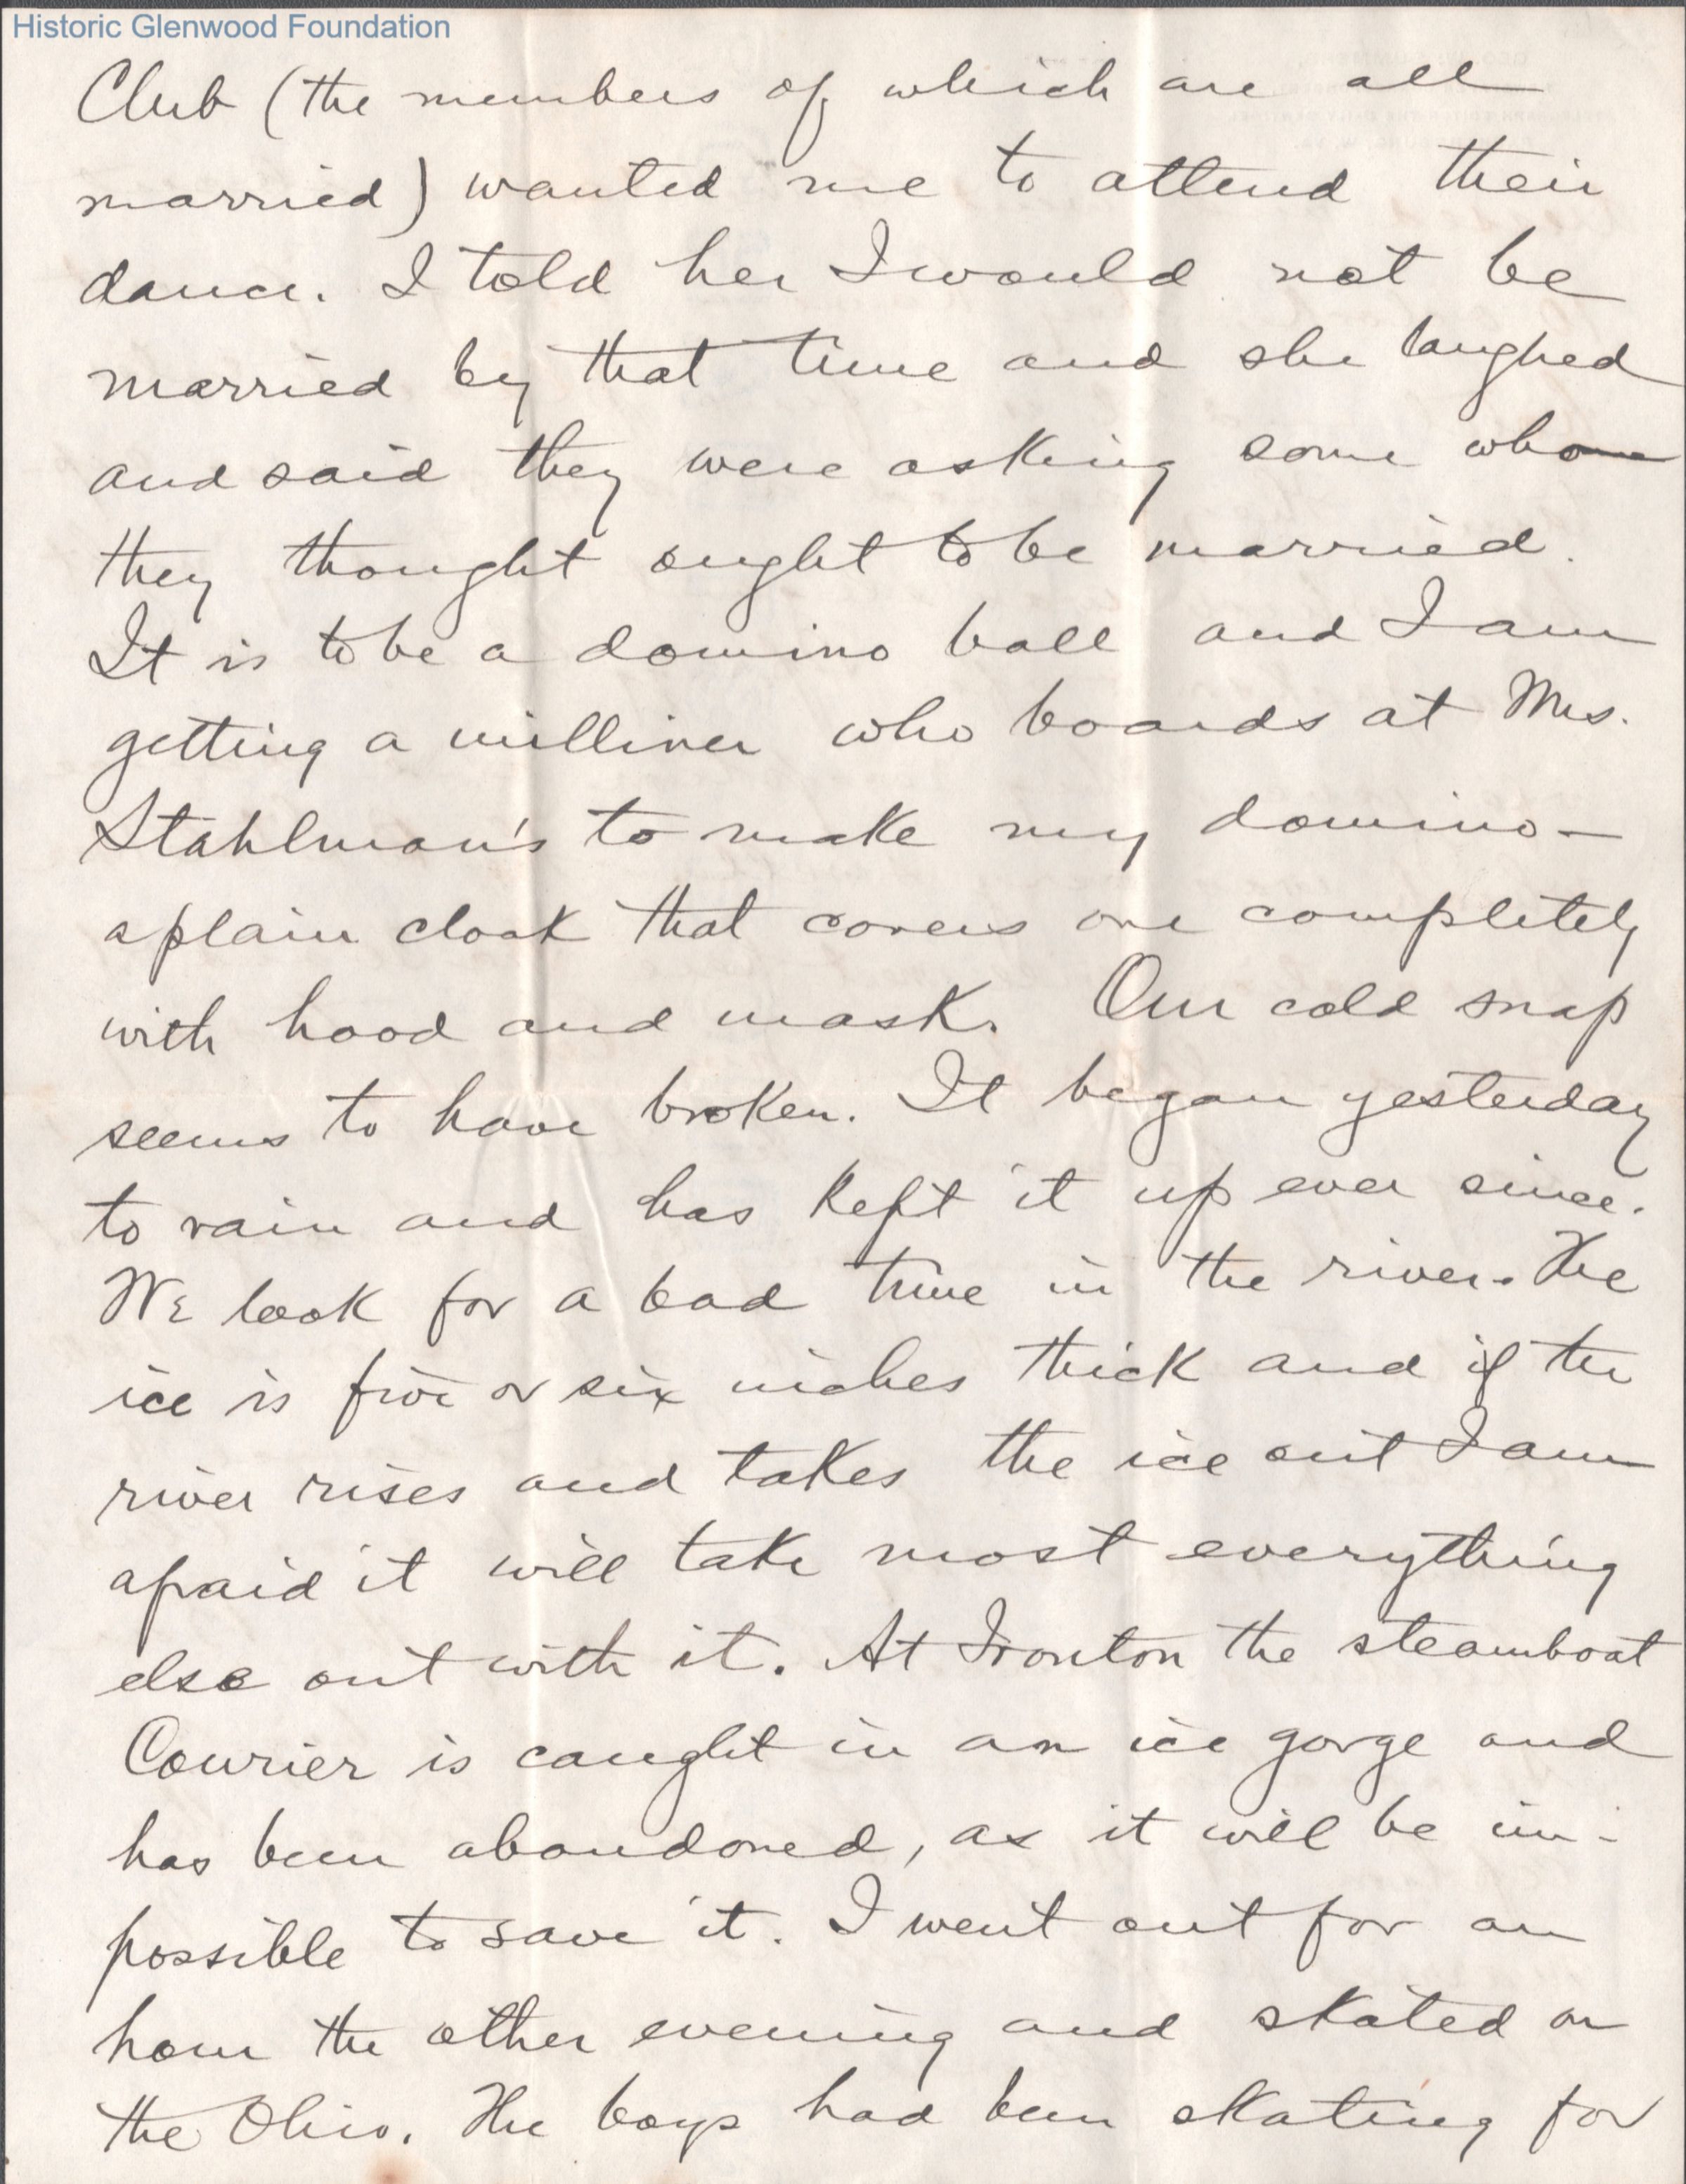 Historic Glenwood Foundation
Club (the members of which are all
married) wanted me to attend their
dance. I told her I would not be
married by that time and she laughed
and said they were asking some who
they thought ought to be married.
It is to be a domino ball and I am
getting a milliner who boards at Mrs.
Stahlman's to make my domino —
a plain cloak that covers one completely
with hood and mask. Our cold snap
seems to have broken. It began yesterday
to rain and has kept it up ever since.
We look for a bad time in the river. The
ice is five or six inches thick and if the
river rises and takes the ice out I am
afraid it will take most everything
else out with it. At Ironton the steamboat
Courier is caught in an ice gorge and
has been abandoned, as it will be im-
possible to save it. I went out for an
hour the other evening and skated on
the Ohio. The boys had been skating for